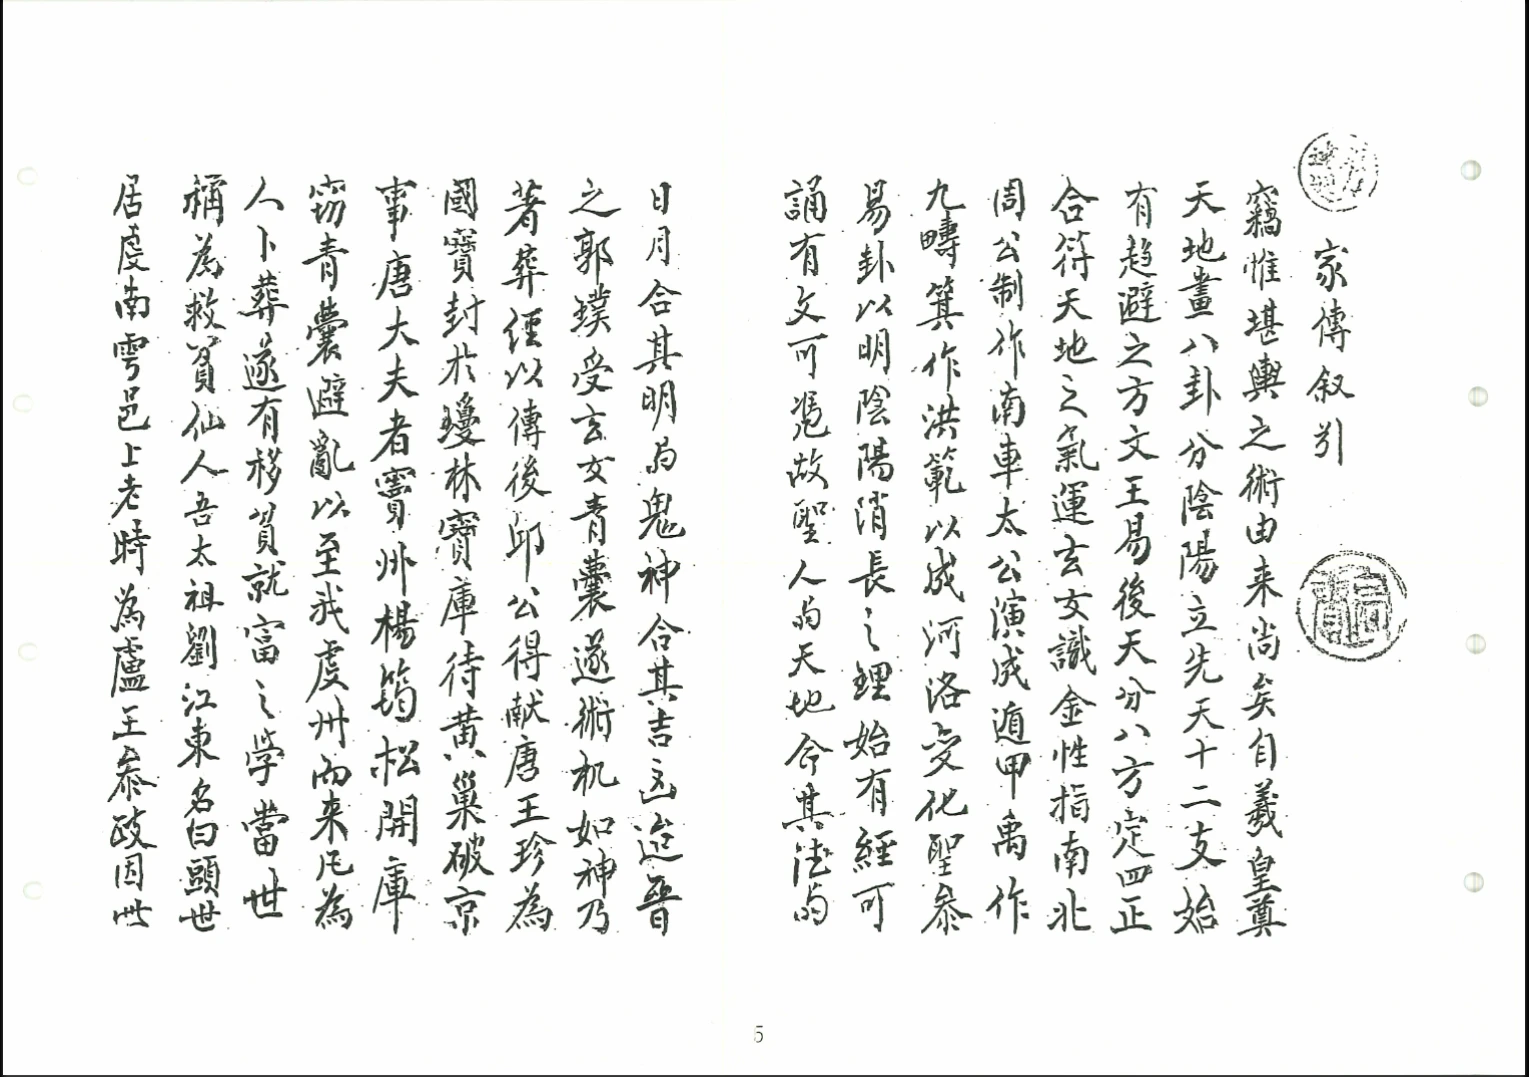 家傳叙引
竊惟堪輿之術由来尚矣自羲皇奠
天地畫八卦分陰陽立先天十二支始
有趋避之方文王易後天分八方定四正
合符天地之氣運玄女識金性指南北
周公制作南車太公演成遁甲禹作
九疇箕作洪範以成河洛变化聖叅
易卦以明陰陽消長之理始有經可
誦有文可凴故聖人与天地合其德与
日月合其明与鬼神合其吉凶迨晉
之郭璞受玄女青囊遂術机如神乃
著葬經以傳後邱公得献唐王珍為
國寶封於瓊林寳庫待黄巢破京
事唐大夫者竇州楊筠松開庫
窃青囊避亂以至我虔州而来凡為
人卜葬遂有移貧就富之学當世
稱為救貧仙人吾太祖劉江東名白頭世
居虔南雩邑上老時為盧王叅政因世
5